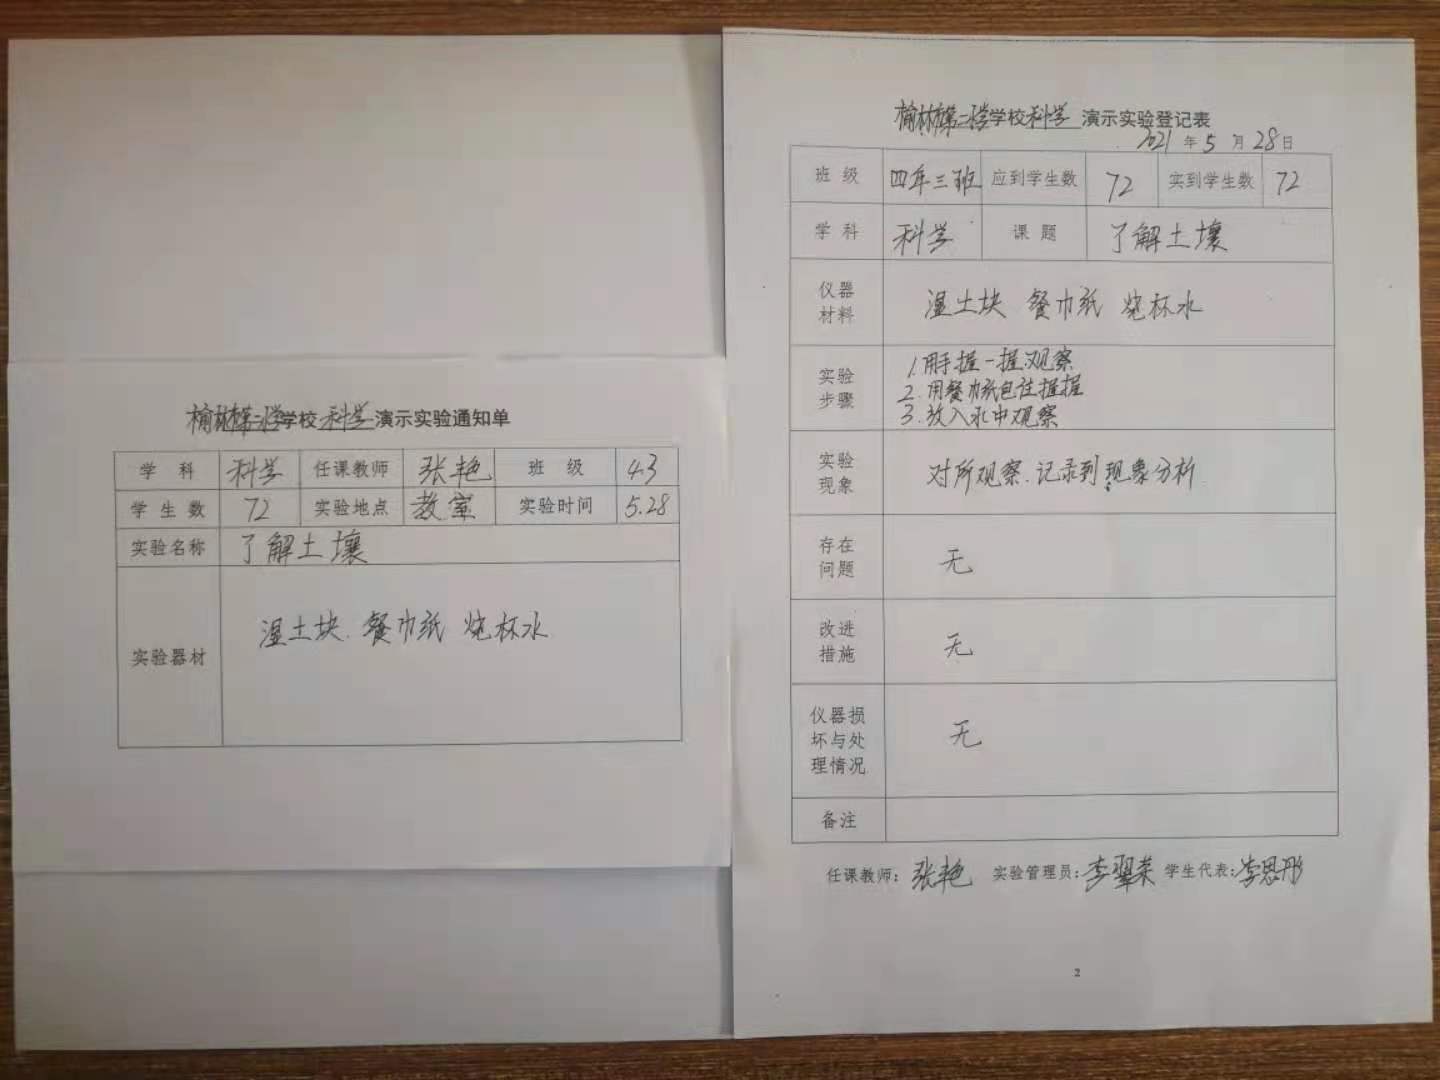 榆林第二小学学校科学演示实验通知单
学 科 科学 任课教师 张艳 班 级 4.3
学 生 数 72 实验地点 教室 实验时间 5.28
实验名称 了解土壤
实验器材 湿土块.餐巾纸 烧杯水
榆林第二小学学校科学 演示实验登记表
2021 年 5 月 28 日
班 级 四年三班 应到学生数 72 实到学生数 72
学 科 科学 课 题 了解土壤
仪器
材料
湿土块 餐巾纸 烧杯水
实验
步骤
1.用手握一握.观察
2.用餐巾纸包住握握
3.放入水中观察
实验
现象
对所观察.记录到现象分析
存在
问题
无
改进
措施
无
仪器损
坏与处
理情况
无
备注
任课教师：张艳 实验管理员：李翠荣 学生代表：李思彤
2